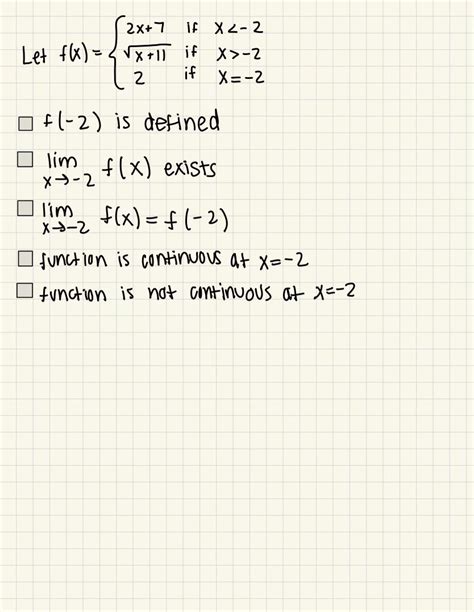 Let f(x) = { 2x+7 if x<-2
√x+11 if x>-2
2 if x=-2
☐ f(-2) is defined
☐ lim x→-2 f(x) exists
☐ lim x→-2 f(x) = f(-2)
☐ function is continuous at x=-2
☐ function is not continuous at x=-2